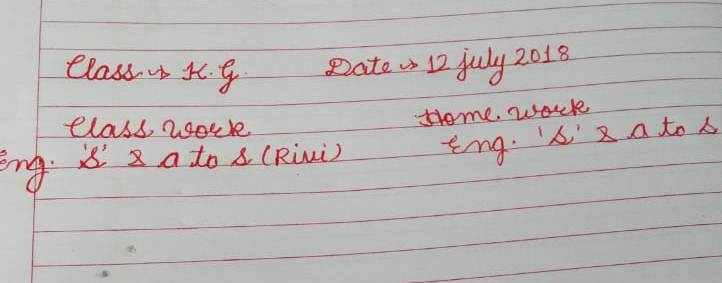 Class → K.G. Date → 12 july 2018
Class work Home work
Eng. 'S' & a to s (Rivi) Eng. 'S' & a to s